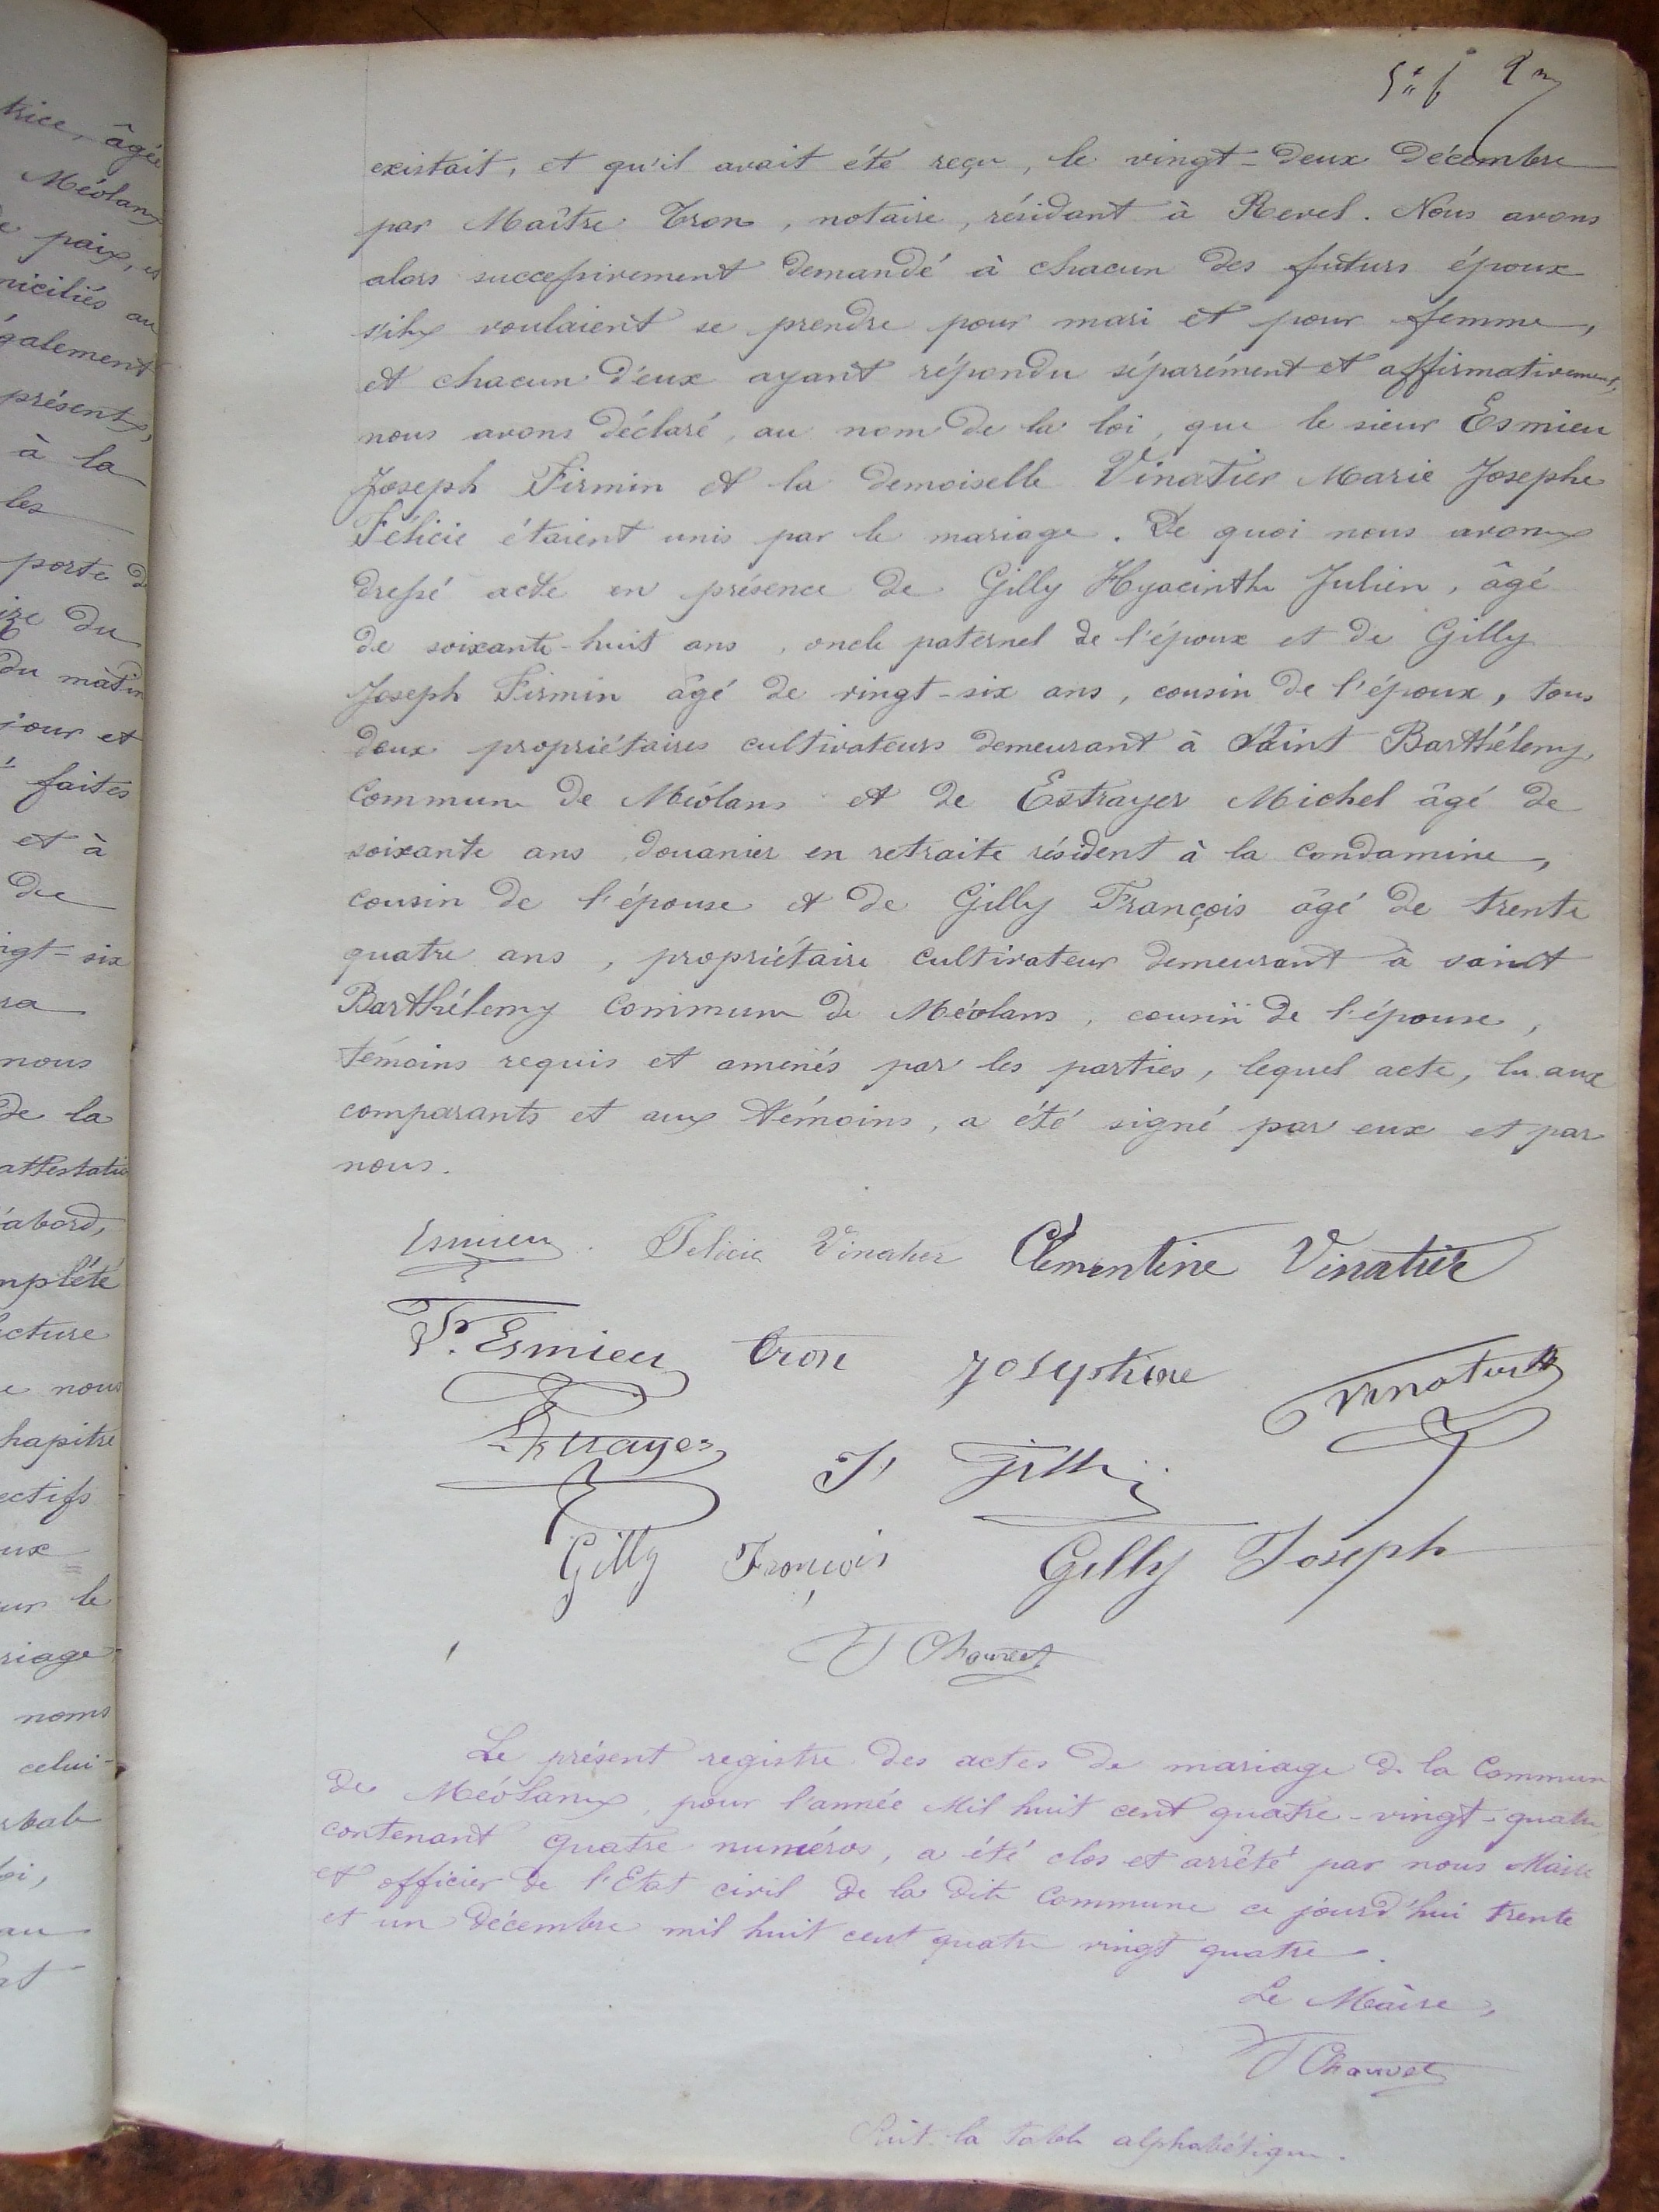 trice, âgée
Méolans
paix, et
miciliés au
également
présents,
à la
les
porte d
ize du
du matin
jour et
faites
et à
de
ngt-six
sa
nous
de la
attestatio
d'abord,
mplété
ecture
e nous
hapitre
ectifs
ux
ur le
riage
noms
celui-
rbale
oi,
au
at
5è f
existait, et qu'il avait été reçu, le vingt-deux Décembre
par Maître Tron, notaire, résidant à Revel. Nous avons
alors successivement demandé à chacun des futurs époux
s'ils voulaient se prendre pour mari et pour femme,
et chacun d'eux ayant répondu séparément et affirmativement,
nous avons déclaré, au nom de la loi, que le sieur Esmieu
Joseph Firmin et la demoiselle Vinatier Marie Josephe
Félicie étaient unis par le mariage. De quoi nous avons
dressé acte en présence de Gilly Hyacinthe Julien, âgé
de soixante-huit ans, oncle paternel de l'époux et de Gilly
Joseph Firmin âgé de vingt-six ans, cousin de l'époux, tous
deux propriétaires cultivateurs demeurant à Saint Barthélemy,
Commune de Méolans et de Estrayer Michel âgé de
soixante ans, douanier en retraite résident à la Condamine,
cousin de l'épouse et de Gilly François âgé de trente
quatre ans, propriétaire cultivateur demeurant à saint
Barthélemy Commune de Méolans, cousin de l'épouse,
témoins requis et amenés par les parties, lequel acte, lu aux
comparants et aux témoins, a été signé par eux et par
nous.
Esmieu. Felicie Vinatier Clémentine Vinatier
Esmieu tron josephine Vinatier
Estrayer J Gilly
Gilly François Gilly Joseph
Chauvet
Le présent registre des actes de mariage de la Commune
de Méolans, pour l'année Mil huit cent quatre-vingt-quatre
contenant quatre numéros, a été clos et arrêté par nous Maire
et officier de l'Etat civil de la dite Commune ce jourd'hui trente
et un Décembre mil huit cent quatre vingt quatre.
Le Maire,
Chauvet
Suit la table alphabétique.